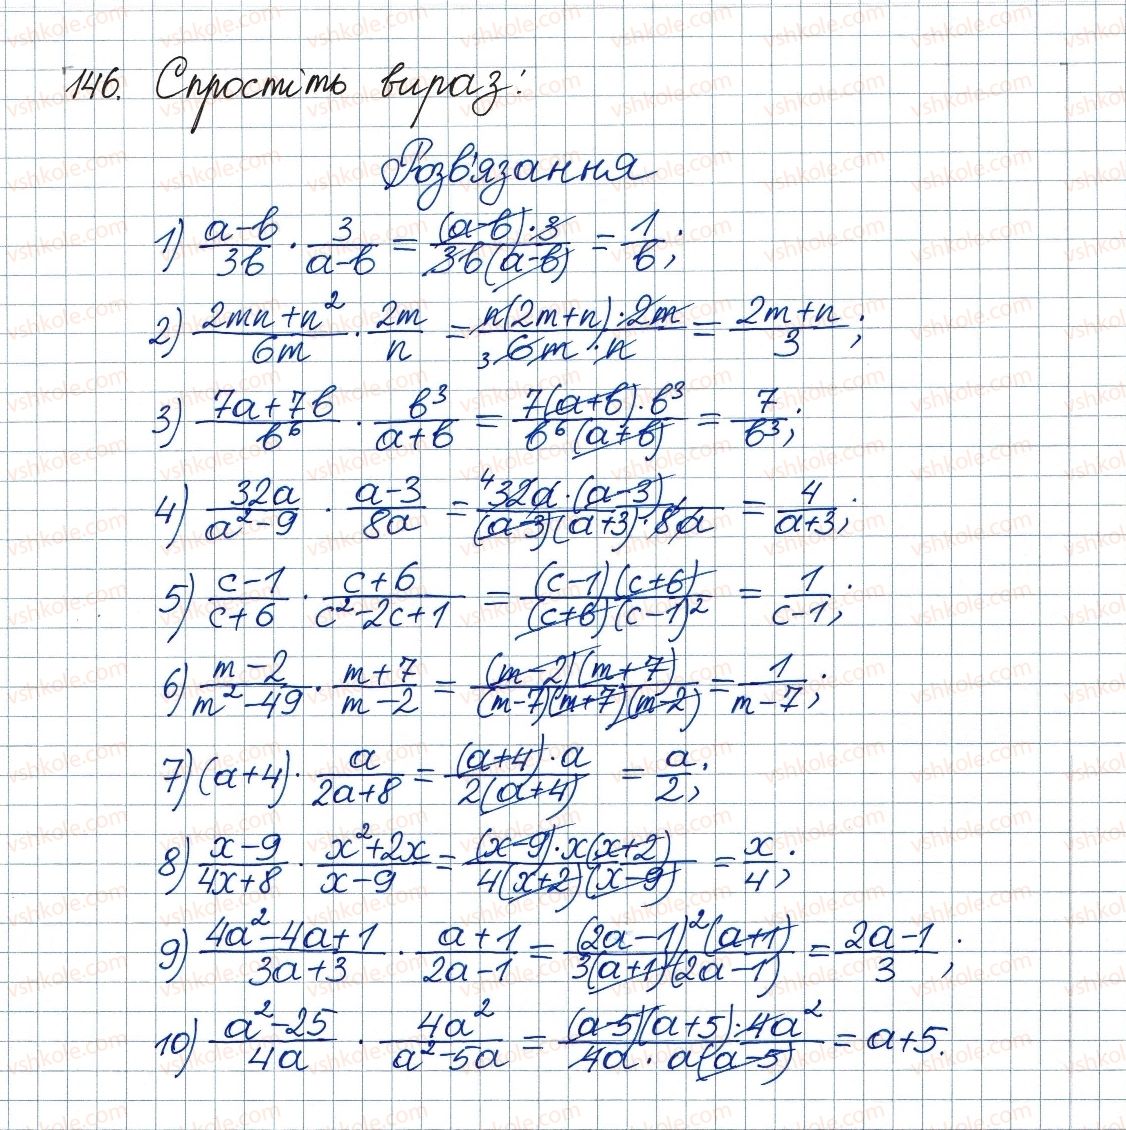 146. Спростіть вираз:
Розв'язання
1) \frac{a-b}{3b} · \frac{3}{a-b} = \frac{(a-b)·3}{3b(a-b)} = \frac{1}{b};
2) \frac{2mn+n^2}{6m} · \frac{2m}{n} = \frac{n(2m+n)·2m}{_3 6m·n} = \frac{2m+n}{3};
3) \frac{7a+7b}{b^6} · \frac{b^3}{a+b} = \frac{7(a+b)·b^3}{b^6(a+b)} = \frac{7}{b^3};
4) \frac{32a}{a^2-9} · \frac{a-3}{8a} = \frac{^4 32a·(a-3)}{(a-3)(a+3)·8a} = \frac{4}{a+3};
5) \frac{c-1}{c+6} · \frac{c+6}{c^2-2c+1} = \frac{(c-1)(c+6)}{(c+6)(c-1)^2} = \frac{1}{c-1};
6) \frac{m-2}{m^2-49} · \frac{m+7}{m-2} = \frac{(m-2)(m+7)}{(m-7)(m+7)(m-2)} = \frac{1}{m-7};
7) (a+4) · \frac{a}{2a+8} = \frac{(a+4)·a}{2(a+4)} = \frac{a}{2};
8) \frac{x-9}{4x+8} · \frac{x^2+2x}{x-9} = \frac{(x-9)·x(x+2)}{4(x+2)(x-9)} = \frac{x}{4};
9) \frac{4a^2-4a+1}{3a+3} · \frac{a+1}{2a-1} = \frac{(2a-1)^2(a+1)}{3(a+1)(2a-1)} = \frac{2a-1}{3};
10) \frac{a^2-25}{4a} · \frac{4a^2}{a^2-5a} = \frac{(a-5)(a+5)·4a^2}{4a·a(a-5)} = a+5.
vshkole.com